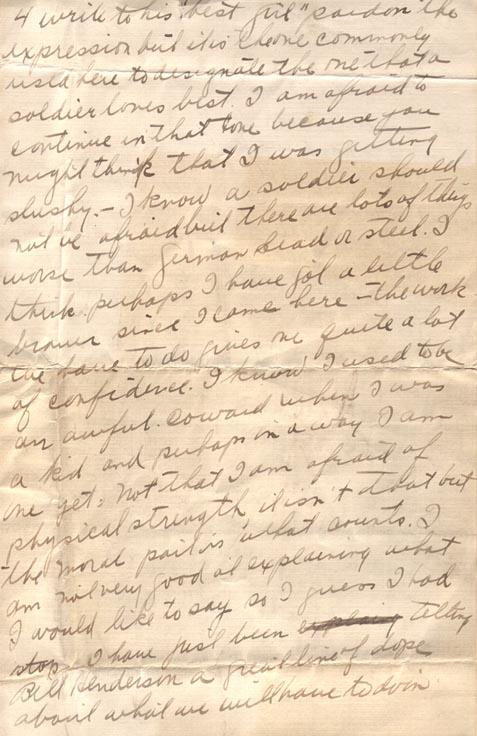 4 write to his "best girl" pardon the
expression but it is the one commonly
used here to designate the one that a
soldier loves best. I am afraid to
continue in that tone because you
might think that I was getting
slushy. – I know a soldier should
not be afraid but there are lots of things
worse than German lead or steel. I
think perhaps I have got a little
braver since I came here – the work
we have to do gives me quite a lot
of confidence. I know I used to be
an awful coward when I was
a kid and perhaps in a way I am
one yet. Not that I am afraid of
physical strength it isn't that but
the moral part is what counts. I
am not very good at explaining what
I would like to say so I guess I had
stop. I have just been explaing telling
Bill Henderson a great line of dope
about what we will have to do in